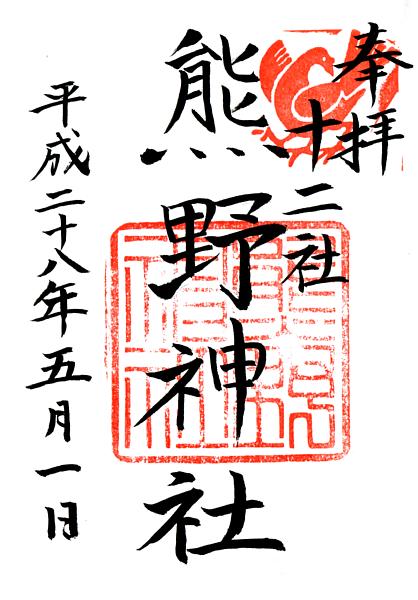 奉拝
十二社
熊野神社
平成二十八年五月一日